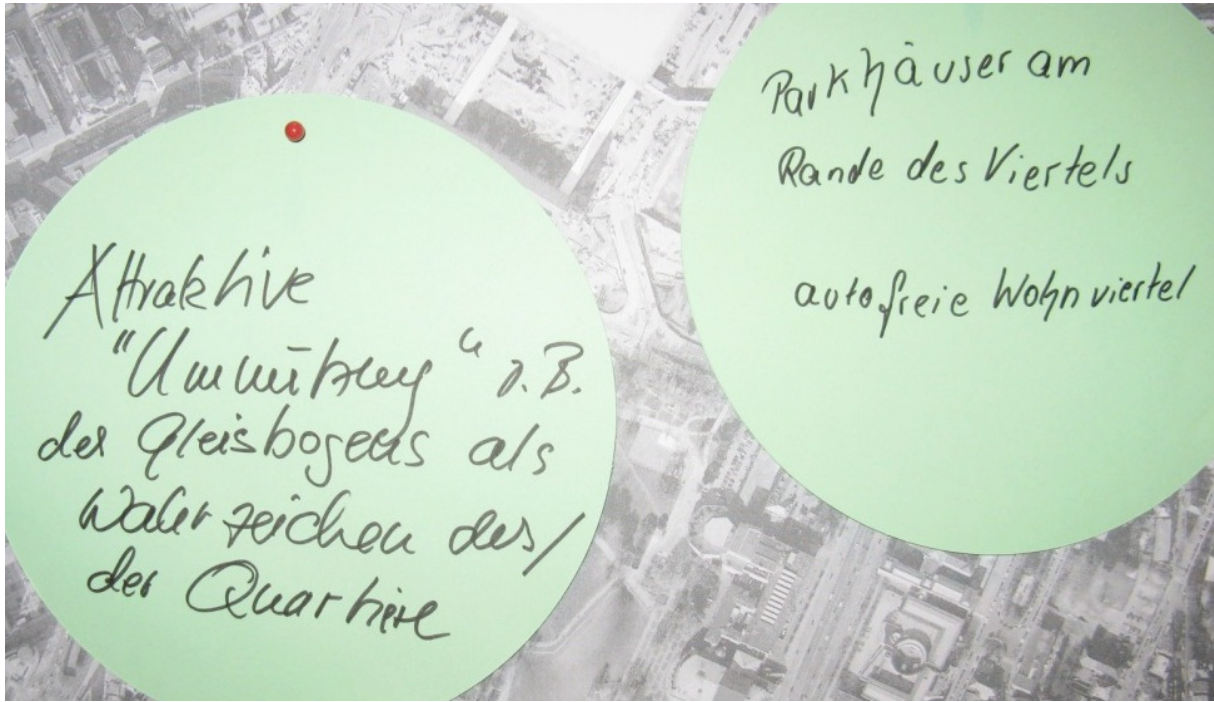 Attraktive
"Umnützung" z.B.
des Gleisbogens als
Wahrzeichen des/
der Quartiere
Parkhäuser am
Rande des Viertels
autofreie Wohnviertel